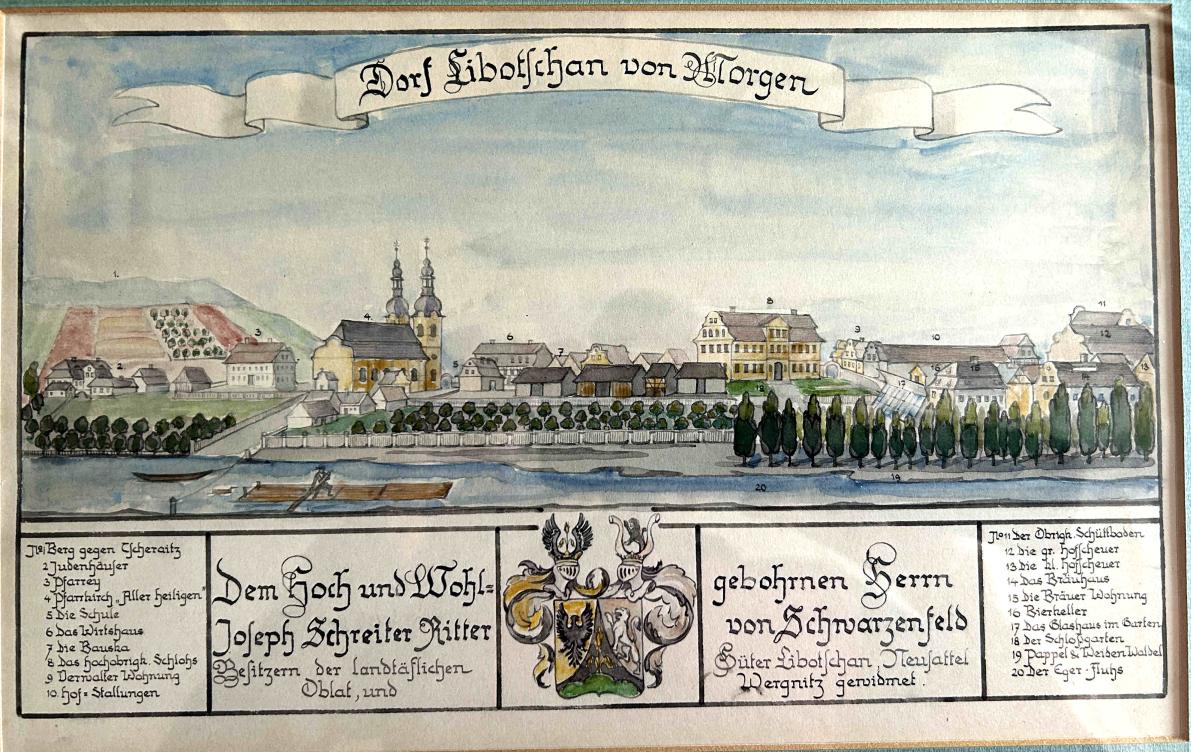 Dorf Libotschan von Morgen
1.
2
3
4
5
6
7
8
9
10
11
12
13
15
16
17
18
19
20
No 1 Berg gegen Tscheraitz
2 Judenhäuser
3 Pfarrey
4 Pfarrkirch „Aller heiligen"
5 Die Schule
6 Das Wirtshaus
7 Die Bauska
8 Das hochobrigk. Schlohs
9 Verwalter Wohnung
10 Hof=Stallungen
Dem Hoch und Wohl=
Joseph Schreiter Ritter
Besitzern der landtäflichen
Oblat, und
gebohrnen Herrn
von Schwarzenfeld
Güter Libotschan, Neusattel
Wergnitz gewidmet.
No 11 Der Obrigk. Schüttboden
12 Die gr. Hofscheuer
13 Die kl. Hofscheuer
14 Das Bräuhaus
15 Die Bräuer Wohnung
16 Bierkeller
17 Das Glashaus im Garten
18 Der Schloßgarten
19 Pappel & Weiden Waldel
20 Der Eger=Fluhs